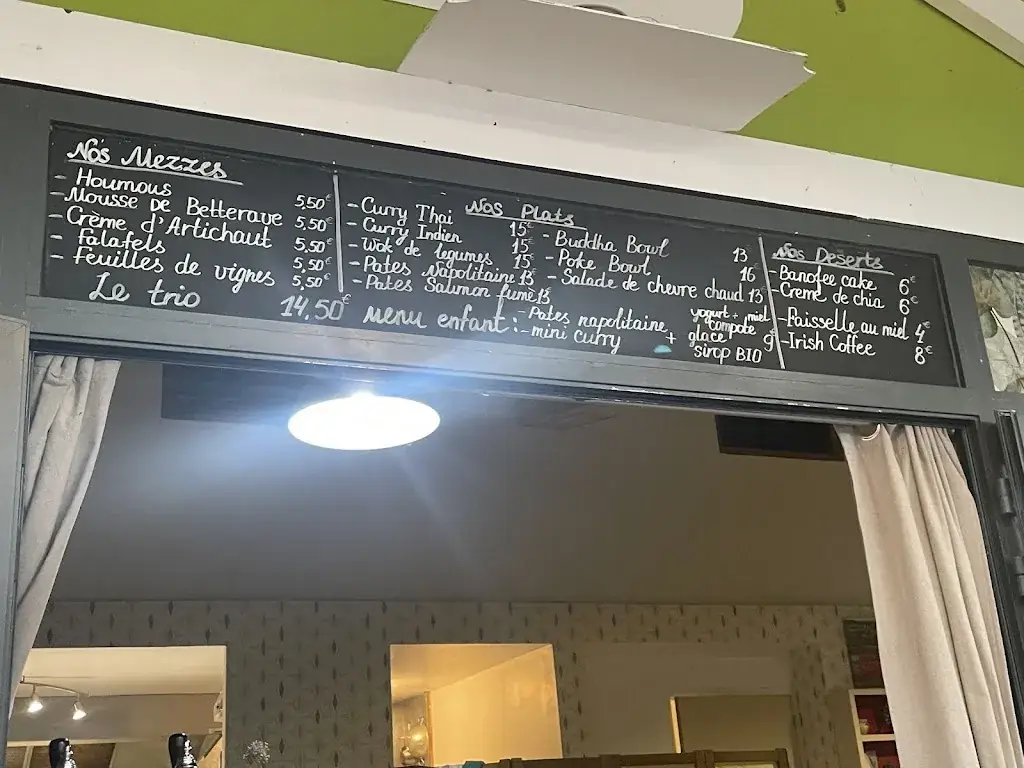 Nos Mezzes
- Houmous 5,50€
- Mousse de Betterave 5,50€
- Crème d'Artichaut 5,50€
- Falafels 5,50€
- Feuilles de vignes 5,50€
Le trio 14,50€
Nos Plats
- Curry Thai 15€
- Curry Indien 15€
- Wok de legumes 15€
- Pates Napolitaine 13€
- Pates Saumon fumé 15
- Buddha Bowl 13
- Poke Bowl 16€
- Salade de chevre chaud 13€
menu enfant: - Pates napolitaine
- mini curry
+
yogurt + miel
compote
glace
sirop BIO
9€
Nos Deserts
- Banofee cake 6€
- Creme de chia 6€
- Faisselle au miel 4€
- Irish Coffee 8€